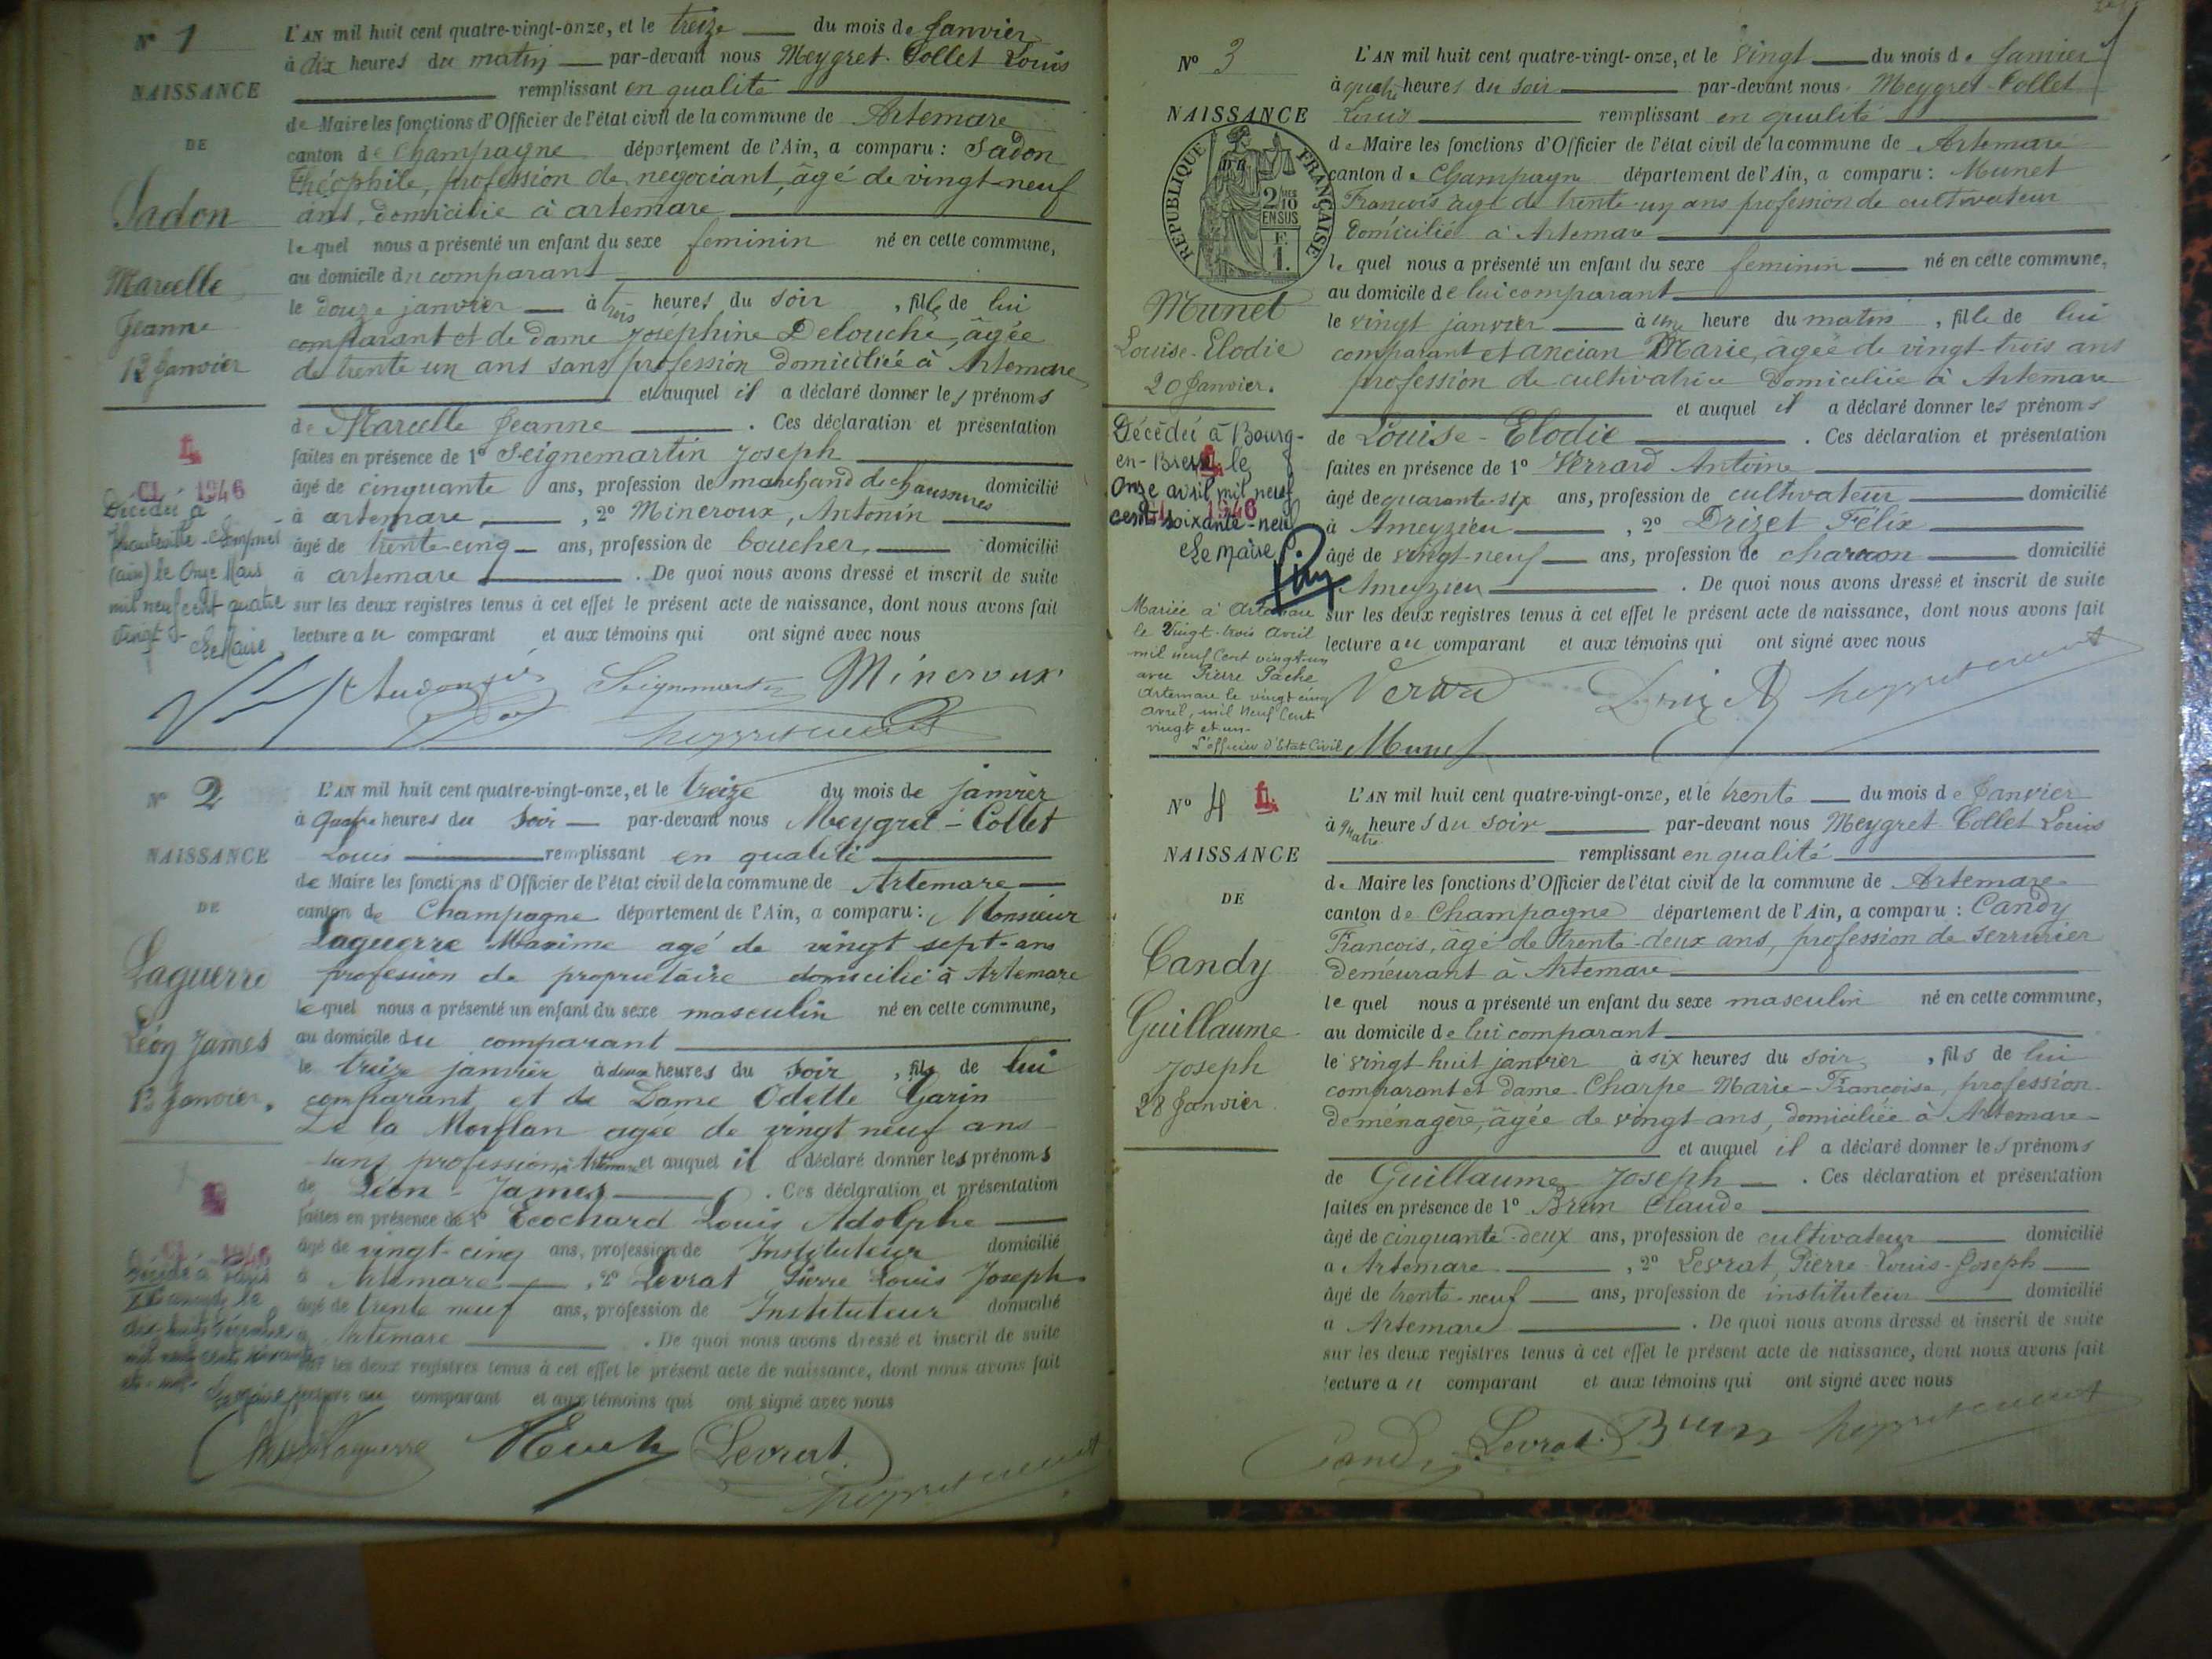 N° 1
NAISSANCE
DE
Sadon
Marcelle
Jeanne
12 Janvier
L'AN mil huit cent quatre-vingt-onze, et le treize du mois de Janvier
à dix heures du matin par-devant nous Meygret-Collet Louis
remplissant en qualité
de Maire les fonctions d'Officier de l'état civil de la commune de Artemare
canton de Champagne département de l'Ain, a comparu : Sadon
Théophile, profession de négociant, âgé de vingt-neuf
ans, domicilié à artemare
lequel nous a présenté un enfant du sexe feminin né en cette commune,
au domicile du comparant
le douze janvier à trois heures du soir, fille de lui
comparant et de Dame Joséphine Delouche, âgée
de trente un ans sans profession domiciliée à Artemare
et auquel il a déclaré donner les prénoms
de Marcelle Jeanne. Ces déclaration et présentation
faites en présence de 1° Seignemartin Joseph
âgé de cinquante ans, profession de marchand de chaussures domicilié
à artemare, 2° Mineroux, Antonin
âgé de trente-cinq ans, profession de boucher, domicilié
à artemare. De quoi nous avons dressé et inscrit de suite
sur les deux registres tenus à cet effet le présent acte de naissance, dont nous avons fait
lecture au comparant et aux témoins qui ont signé avec nous
CL 1946
Décédée à
Hauteville-Lompnes
(ain) le Onze Mars
mil neuf cent quatre
vingt
Le Maire
Mineroux
N° 2
NAISSANCE
DE
Laguerre
Léon James
13 Janvier.
L'AN mil huit cent quatre-vingt-onze, et le treize du mois de janvier
à quatre heures du soir par-devant nous Meygret-Collet
Louis remplissant en qualité
de Maire les fonctions d'Officier de l'état civil de la commune de Artemare
canton de Champagne département de l'Ain, a comparu : Monsieur
Laguerre Maxime agé de vingt sept-ans
profession de propriétaire domicilié à Artemare
lequel nous a présenté un enfant du sexe masculin né en cette commune,
au domicile du comparant
le treize janvier à deux heures du soir, fils de lui
comparant et de Dame Odette Garin
De la Morflan agée de vingt neuf ans
sans profession, à Artemare et auquel il a déclaré donner les prénoms
de Léon-James. Ces déclaration et présentation
faites en présence de 1° Ecochard Louis Adolphe
âgé de vingt-cinq ans, profession de Instituteur domicilié
à Artemare, 2° Levrat Pierre Louis Joseph
âgé de trente neuf ans, profession de Instituteur domicilié
à Artemare. De quoi nous avons dressé et inscrit de suite
sur les deux registres tenus à cet effet le présent acte de naissance, dont nous avons fait
lecture au comparant et aux témoins qui ont signé avec nous
Laguerre Levrat
N° 3
NAISSANCE
RÉPUBLIQUE FRANÇAISE
2/10 EN SUS
F. 1.
Munet
Louise-Elodie
20 Janvier.
L'AN mil huit cent quatre-vingt-onze, et le vingt du mois de Janvier
à quatre heures du soir par-devant nous Meygret-Collet
Louis remplissant en qualité
de Maire les fonctions d'Officier de l'état civil de la commune de Artemare
canton de Champagne département de l'Ain, a comparu : Munet
François âgé de trente-un ans profession de cultivateur
Domicilié à Artemare
lequel nous a présenté un enfant du sexe feminin né en cette commune,
au domicile de lui comparant
le vingt janvier à une heure du matin, fille de lui
comparant et ancian Marie, âgée de vingt-trois ans
profession de cultivatrice Domiciliée à Artemare
et auquel il a déclaré donner les prénoms
de Louise-Elodie. Ces déclaration et présentation
faites en présence de 1° Verrard Antoine
âgé de quarante-six ans, profession de cultivateur domicilié
à Ameyzieu, 2° Drizet Félix
âgé de vingt-neuf ans, profession de charron domicilié
Ameyzieu. De quoi nous avons dressé et inscrit de suite
sur les deux registres tenus à cet effet le présent acte de naissance, dont nous avons fait
lecture au comparant et aux témoins qui ont signé avec nous
Décédée à Bourg-
en-Bresse le
Onze avril mil neuf
cent soixante-neuf
Le Maire
1946
Mariée à Artemare
le Vingt-trois Avril
mil neuf Cent vingt-un
avec Pierre Pache
Artemare le vingt-cinq
avril, mil Neuf Cent
vingt et un
L'officier d'Etat Civil
Munet
N° 4
NAISSANCE
DE
Candy
Guillaume
Joseph
28 Janvier.
L'AN mil huit cent quatre-vingt-onze, et le trente du mois de Janvier
à quatre heures du soir par-devant nous Meygret-Collet Louis
remplissant en qualité
de Maire les fonctions d'Officier de l'état civil de la commune de Artemare
canton de Champagne département de l'Ain, a comparu : Candy
François, âgé de trente-deux ans, profession de serrurier
demeurant à Artemare
lequel nous a présenté un enfant du sexe masculin né en cette commune,
au domicile de lui comparant
le vingt-huit janvier à six heures du soir, fils de lui
comparant et dame Charpe Marie-Françoise, profession
de ménagère, âgée de vingt ans, domiciliée à Artemare
et auquel il a déclaré donner les prénoms
de Guillaume Joseph. Ces déclaration et présentation
faites en présence de 1° Brun Claude
âgé de cinquante-deux ans, profession de cultivateur domicilié
à Artemare, 2° Levrat, Pierre-Louis-Joseph
âgé de trente-neuf ans, profession de instituteur domicilié
à Artemare. De quoi nous avons dressé et inscrit de suite
sur les deux registres tenus à cet effet le présent acte de naissance, dont nous avons fait
lecture au comparant et aux témoins qui ont signé avec nous
Candy Levrat Brun